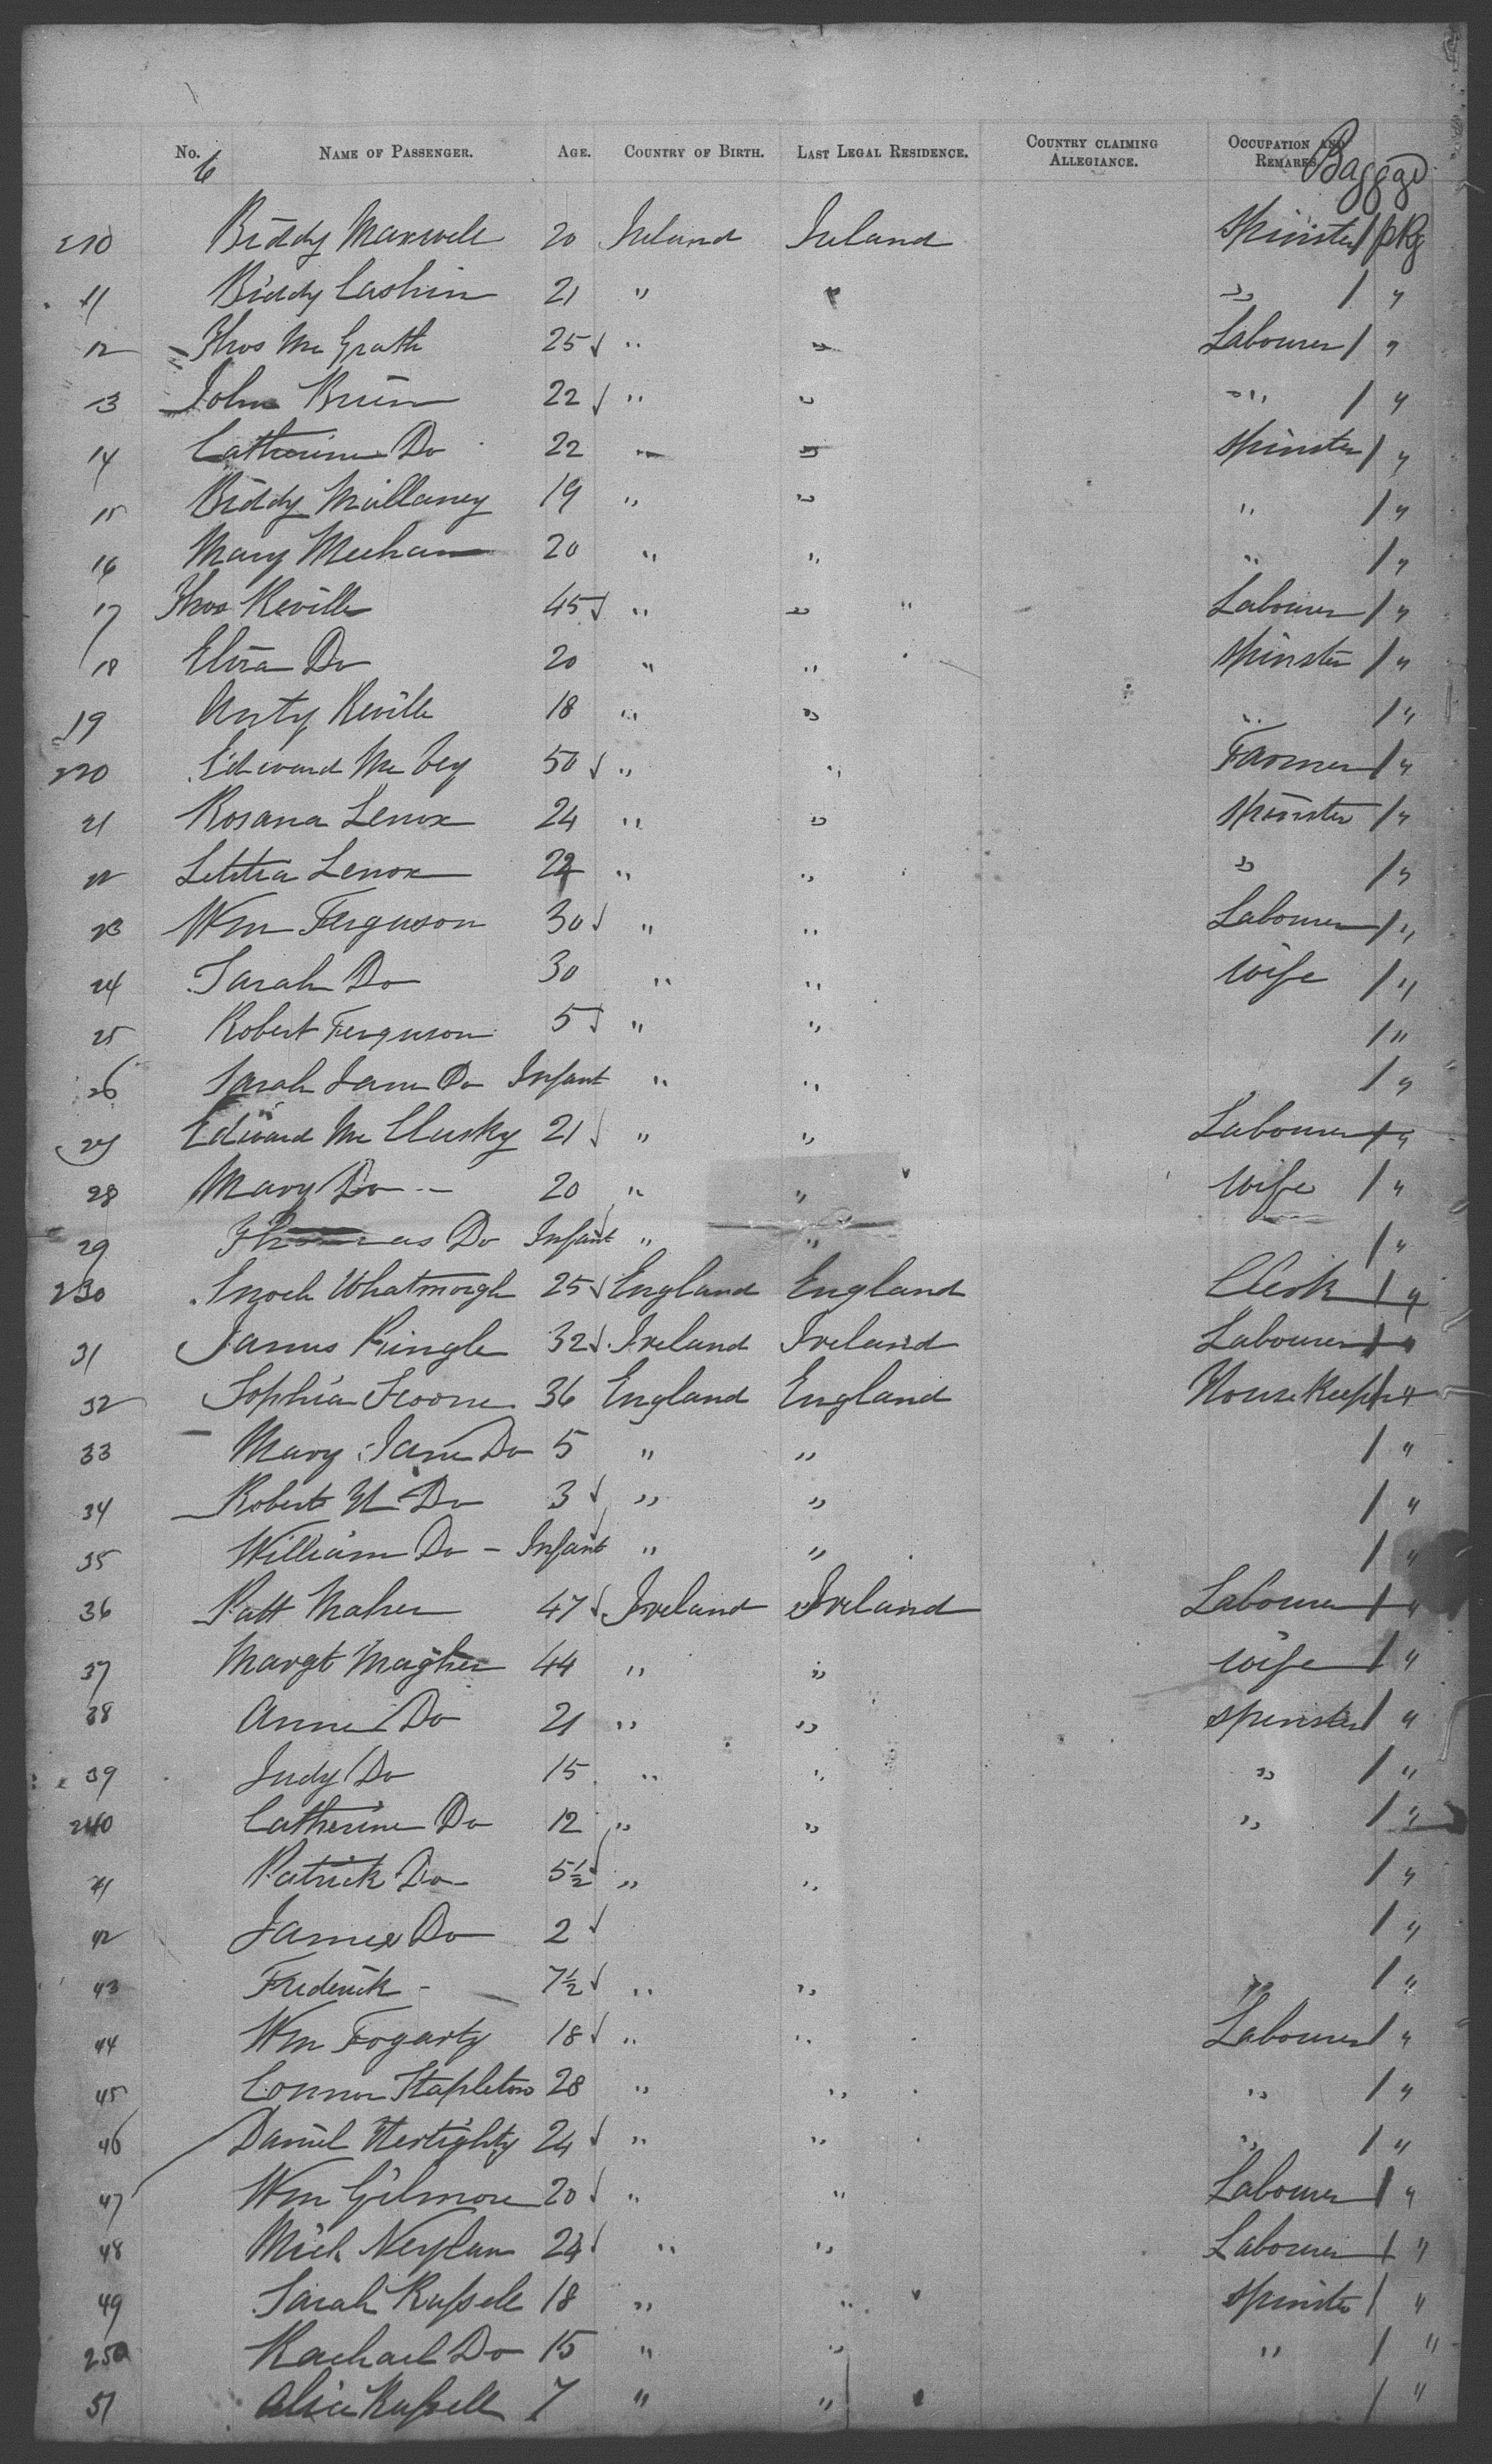 No. NAME OF PASSENGER. AGE. COUNTRY OF BIRTH. LAST LEGAL RESIDENCE. COUNTRY CLAIMING ALLEGIANCE. OCCUPATION AND REMARKS. Baggage
6
210 Biddy Maxwell 20 Ireland Ireland Spinster 1 pkg
11 Biddy Cashin 21 " " " 1 "
12 Thos Mc Grath 25 " " Labourer 1 "
13 John Brien 22 " " " 1 "
14 Catherine Do 22 " " Spinster 1 "
15 Biddy Mullaney 19 " " " 1 "
16 Mary Meehan 20 " " " 1 "
17 Thos Reville 45 " " " Labourer 1 "
18 Eliza Do 20 " " Spinster 1 "
19 Anty Reville 18 " " " 1 "
220 Edward Mc 50 " " Farmer 1 "
21 Rosana Lenox 24 " " Spinster 1 "
22 Letitia Lenox 22 " " " 1 "
23 Wm Ferguson 30 " " Labourer 1 "
24 Sarah Do 30 " " Wife 1 "
25 Robert Ferguson 5 " " 1 "
26 Sarah Jane Do Infant " " 1 "
27 Edward Mc Clusky 21 " " Labourer 1 "
28 Mary Do 20 " " Wife 1 "
29 Thomas Do Infant " " 1 "
230 Enoch Whatmough 25 England England Clerk 1 "
31 James Pringle 32 Ireland Ireland Labourer 1 "
32 Sophia 36 England England House Keeper 1 "
33 Mary Jane Do 5 " " 1 "
34 Robert Do 3 " " 1 "
35 William Do - Infant " " 1 "
36 Patt Maher 47 Ireland Ireland Labourer 1 "
37 Margt Magher 44 " " Wife 1 "
38 Anne Do 21 " " Spinster 1 "
39 Judy Do 15 " " " 1 "
240 Catherine Do 12 " " " 1 "
41 Patrick Do 5½ " " 1 "
42 James Do 2 1 "
43 Frederick - 7½ " " " 1 "
44 Wm Fogarty 18 " " Labourer 1 "
45 Connor Stapleton 28 " " " 1 "
46 Daniel 24 " " " 1 "
47 Wm Gilmore 20 " " Labourer 1 "
48 Mich Neylan 24 " " Labourer 1 "
49 Sarah Russell 18 " " Spinster 1 "
250 Rachael Do 15 " " " 1 "
51 Alice Russell 7 " " 1 "